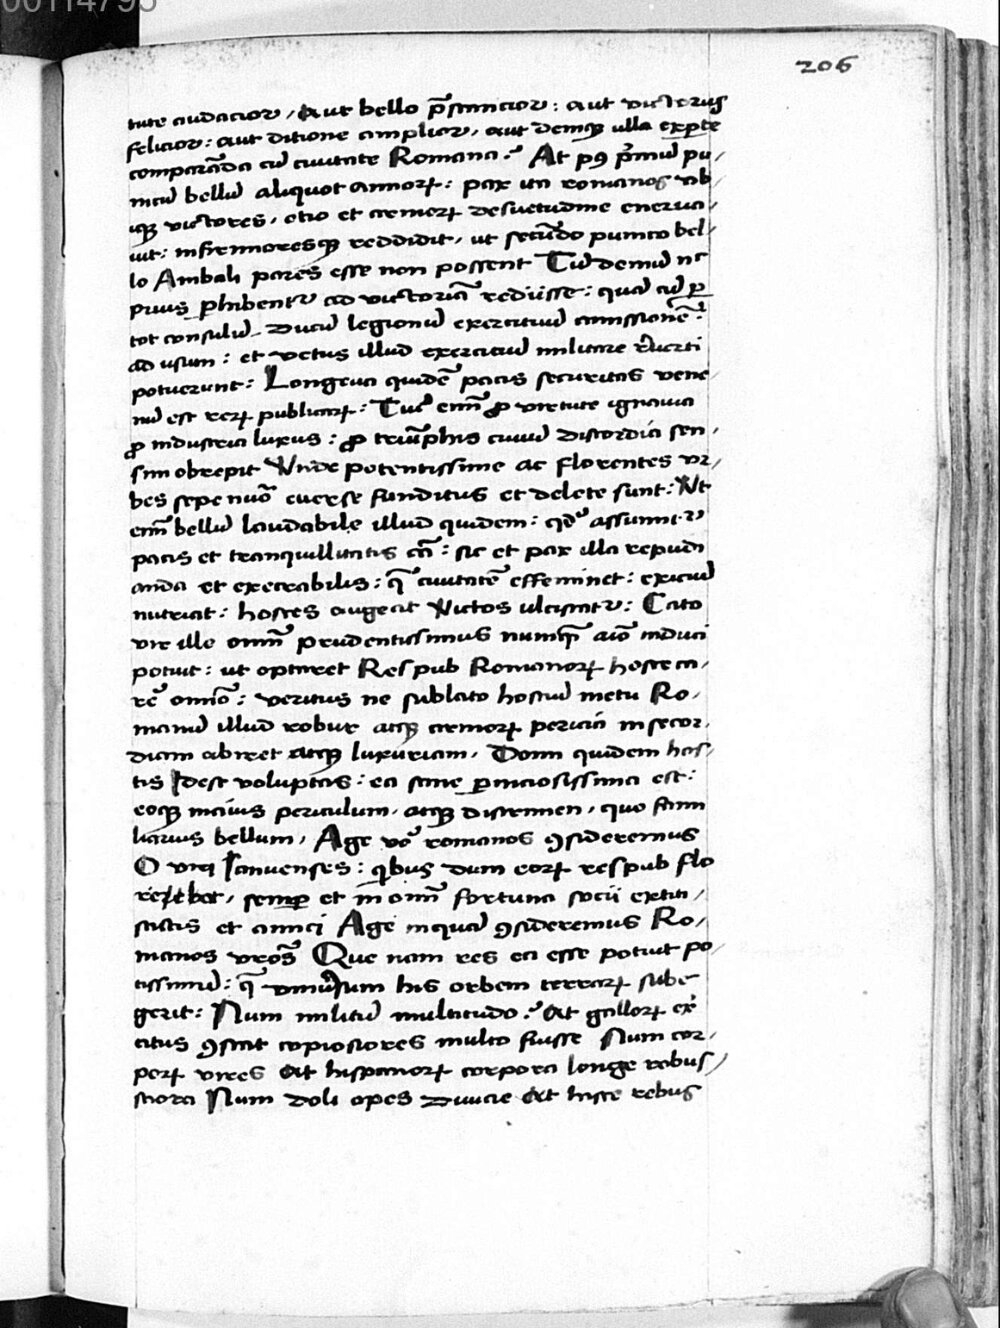 00114795
206
tute audacior, Aut bello p̄stancior: aut victorijs
felicior: aut ditione amplior, aut deniqꝫ ulla ex p̲te
comparāda cū ciuitate Romana? At pꝰ p̄mū pu,
nicū bellū aliquot annorꝝ: pax ita romanos vb,
iqꝫ victores, otio et armorꝝ desuetudine enerua,
uit: infirmioresqꝫ reddidit, ut secūdo punico bel,
lo Anibali pares esse non possent Tū demū nc̄
prius p̲hibentᷣ ad victoriā redijsse: quā cū p̲
tot consulū ducū legionū exercituū amissionē:
ad usum: et vetus illud exerciciū militare r̄uerti
potuerunt: Longeua quidē pacis securitas vene,
nū est rerꝝ publicarꝝ: Tūc enī ꝓ virtute ignauia
ꝓ industria luxus: ꝓ triūphis ciuiū discordia sen,
sim obrepit Vnde potentissime ac florentes vr,
bes sepe nūo euerse funditus et delete sunt: Vt
enī bellū laudabile illud quidem: qd̓ assumitᷣ
pacis et tranquillitatis cā: sic et pax illa repudi
anda et execrabilis: q̄ ciuitatē effeminet: exiciū
nutriat: hostes augeat Victos ulciscatᷣ: Cato
vir ille omnī prudentissimus numqꝫ aīo induci
potuit: ut optaret Respub Romanorꝝ hoste ca,
rē omīo: veritus ne sublato hostiū metu Ro,
manū illud robur atqꝫ armorꝝ pericia in secor,
diam abiret atqꝫ luxuriam, Domi quidem hos,
tis Idest voluptas: ea sane p̲niciosissima est:
eoqꝫ maius periculum, atqꝫ discrimen, quo fami
liarius bellum, Age vō romanos ꝯsideremus
O viri Ianuenses: qͥbus dum eorꝝ respub flo
rebat, semp̲ et in omnī fortuna socii extiti,
stictis et amici Age inquā ꝯsideremus Ro,
manos vrōs Que nam res ea esse potuit po,
tissimū: q̄ vniūsum his orbem terrarꝝ sube
gerit: Num militū multitudo? At gallorꝝ ex̄
citus ꝯstat copiosiores multo fuisse Num cor,
porꝝ vires At hispanorꝝ corpora longe robus,
tiora Num doli opes diuicie At hisce rebus